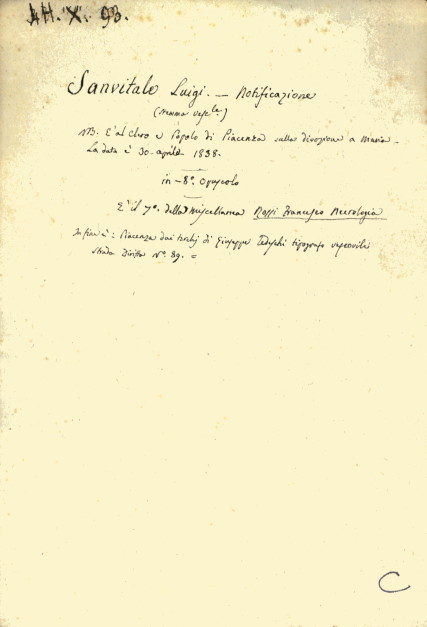 AH. X. 93.
Sanvitale Luigi. — Notificazione
(stemma vesc.le)
NB. È al Clero e Popolo di Piacenza sulla divozione a Maria –
La data è 30. aprile 1838.
in – 8º. opuscolo
È il 7º. della Miscellanea Rossi Francesco Necrologia
In fine è: Piacenza dai torchj di Giuseppe Tedeschi tipografo vescovile
strada Diritta Nº. 89. =
C